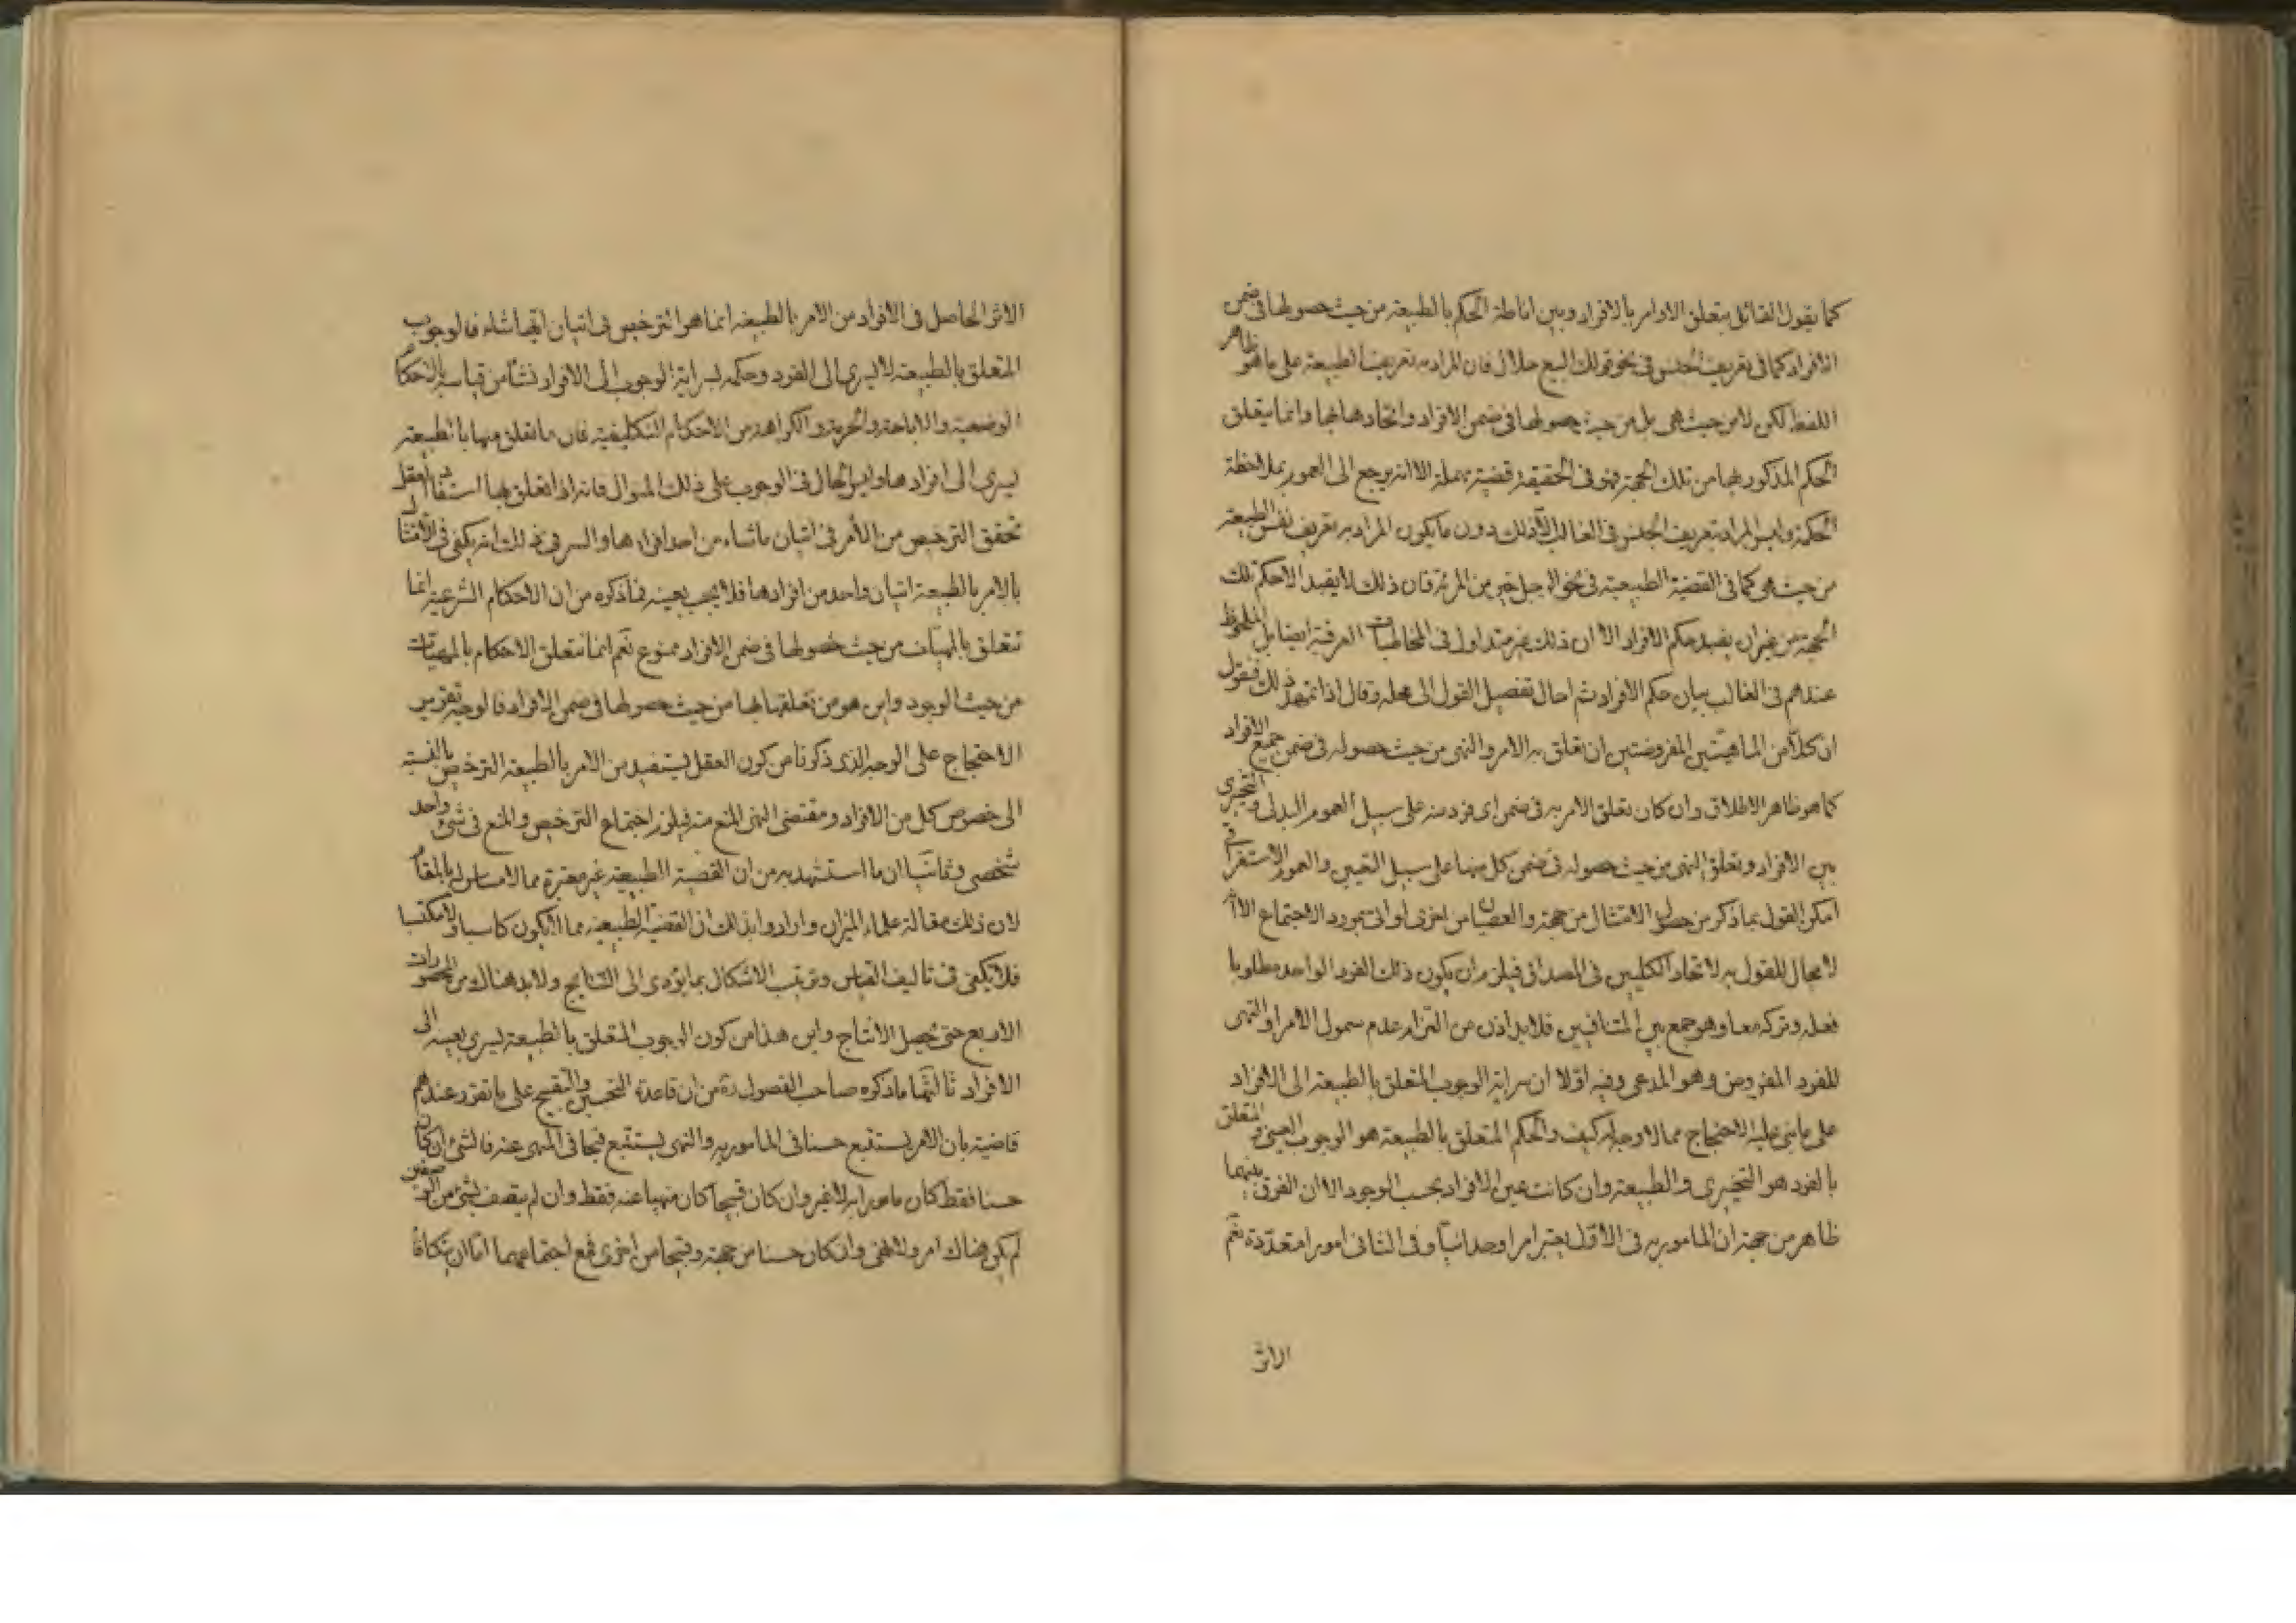 كما يقول القائل بتعلق الاوامر بالافراد وبين اناطة الحكم بالطبيعة من حيث حصولها فى ضمن
الافراد كما فى تعريف الجنس فى نحو قولك البيع حلال فان المراد به تعريف الطبيعة على ما هو ظاهر
اللفظ لكن لا من حيث هى بل من حيث حصولها فى ضمن الافراد واتحادها بها وانما يتعلق
الحكم المذكور بها من تلك الجهة فهو فى الحقيقة قضية مهملة الا انه يرجع الى العموم بملاحظة
الحكمة وليس المراد بتعريف الجنس فى الغالب الا ذلك دون ما يكون المراد به تعريف نفس الطبيعة
من حيث هى كما فى القضية الطبيعية فى نحو الرجل خير من المرئة فان ذلك لا يفيد الا حكم تلك
الجهة من غير ان يفيد حكم الافراد الا ان ذلك غير متداول فى المخاطبات العرفية ايضا بل الملحوظ
عندهم فى الغالب بيان حكم الافراد ثم احال تفصيل القول الى محله وقال اذا تمهد ذلك فنقول
ان كلا من الماهيتين المفروضتين ان تعلق به الامر والنهى من حيث حصوله فى ضمن جميع الافراد
كما هو ظاهر الاطلاق وان كان تعلق الامر به فى ضمن اى فرد منه على سبيل العموم البدلى والتخييرى
بين الافراد وتعلق النهى من حيث حصوله فى ضمن كل منها على سبيل التعيين والعموم الاستغراقى
امكن القول بما ذكر من حصول الامتثال من جهة والعصيان من اخرى لو اتى بمورد الاجتماع الا انه
لا مجال للقول به لاتحاد الكليين فى المصداق فيلزم ان يكون ذلك الفرد الواحد مطلوبا
فعله وتركه معا وهو جمع بين المتنافيين فلا بد اذن من التزام عدم شمول الامر او النهى
للفرد المفروض وهو المدعى وفيه اولا ان سراية الوجوب المتعلق بالطبيعة الى الافراد
على ما بنى عليه الاحتجاج مما لا وجه له كيف والحكم المتعلق بالطبيعة هو الوجوب العينى والمتعلق
بالفرد هو التخييرى والطبيعة وان كانت عين الافراد بحسب الوجود الا ان الفرق بينهما
ظاهر من جهة ان المامور به فى الاول يعتبر امرا وحدانيا وفى الثانى امورا متعددة نعم
الاثر
الاثر الحاصل فى الافراد من الامر بالطبيعة انما هو الترخيص فى اتيان ايها شاء فالوجوب
المتعلق بالطبيعة لا يسرى الى الفرد وحكمه بسراية الوجوب الى الافراد نشأ من قياسه بالاحكام
الوضعية والاباحة والحرمة والكراهة من الاحكام التكليفية فان ما تعلق منها بالطبيعة
يسرى الى افرادها وليس الحال فى الوجوب على ذلك المنوال فانه اذا تعلق بها استفاد العقل
تحقق الترخيص من الآمر فى اتيان ما شاء من احد افرادها والسر فى ذلك انه يكفى فى الامتثال
بالامر بالطبيعة اتيان واحد من افرادها فلا يجب بعينه فما ذكره من ان الاحكام الشرعية انما
تتعلق بالمهيات من حيث حصولها فى ضمن الافراد ممنوع نعم انما تتعلق الاحكام بالمهيات
من حيث الوجود واين هو من تعلقها بها من حيث حصولها فى ضمن الافراد فالوجه تقرير
الاحتجاج على الوجه الذى ذكرنا من كون العقل يستفيد من الامر بالطبيعة الترخيص بالنسبة
الى خصوص كل من الافراد ومقتضى النهى المنع منه فيلزم اجتماع الترخيص والمنع فى شئ واحد
شخصى وثانيا ان ما استشهد به من ان القضية الطبيعية غير معتبرة مما لا مساس له بالمقام
لان ذلك مقالة علماء الميزان وارادوا بذلك ان القضية الطبيعية مما لا يكون كاسبا ولا مكتسبا
فلا يكفى فى تاليف القياس وترتيب الاشكال بما يؤدى الى النتايج ولا بد هناك من المحصورات
الاربع حتى يحصل الانتاج واين هذا من كون الوجوب المتعلق بالطبيعة يسرى بعينه الى
الافراد ثالثها ما ذكره صاحب الفصول ره من ان قاعدة التحسين والتقبيح على ما تقرر عندهم
قاضية بان الامر يستتبع حسنا فى المامور به والنهى يستتبع قبحا فى المنهى عنه فالشئ ان كان
حسنا فقط كان مامورا به لا غير وان كان قبيحا كان منهيا عنه فقط وان لم يتصف بشئ من الوصفين
لم يكن هناك امر ولا نهى وان كان حسنا من جهة وقبيحا من اخرى فمع اجتماعهما اما ان يتكافآ